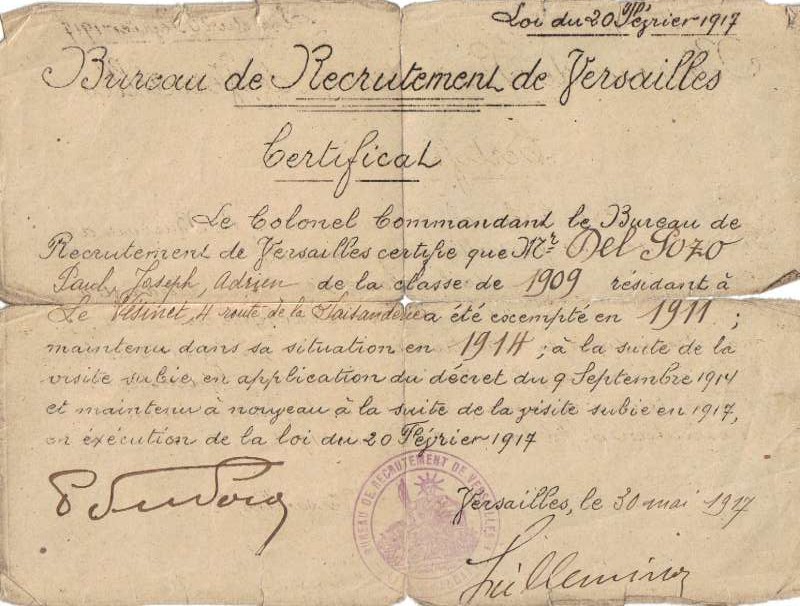 Loi du 20 Février 1917
Bureau de Recrutement de Versailles
Certificat
Le Colonel Commandant le Bureau de
Recrutement de Versailles certifie que Mr Del Sozo
Paul, Joseph, Adrien de la classe de 1909 résidant à
Le Vésinet, 4 route de la Faisanderie a été exempté en 1911 ;
maintenu dans sa situation en 1914 ; à la suite de la
visite subie, en application du décret du 9 Septembre 1914
et maintenu à nouveau à la suite de la visite subie en 1917,
en exécution de la loi du 20 Février 1917
BUREAU DE RECRUTEMENT DE VERSAILLES
Versailles, le 30 mai 1917